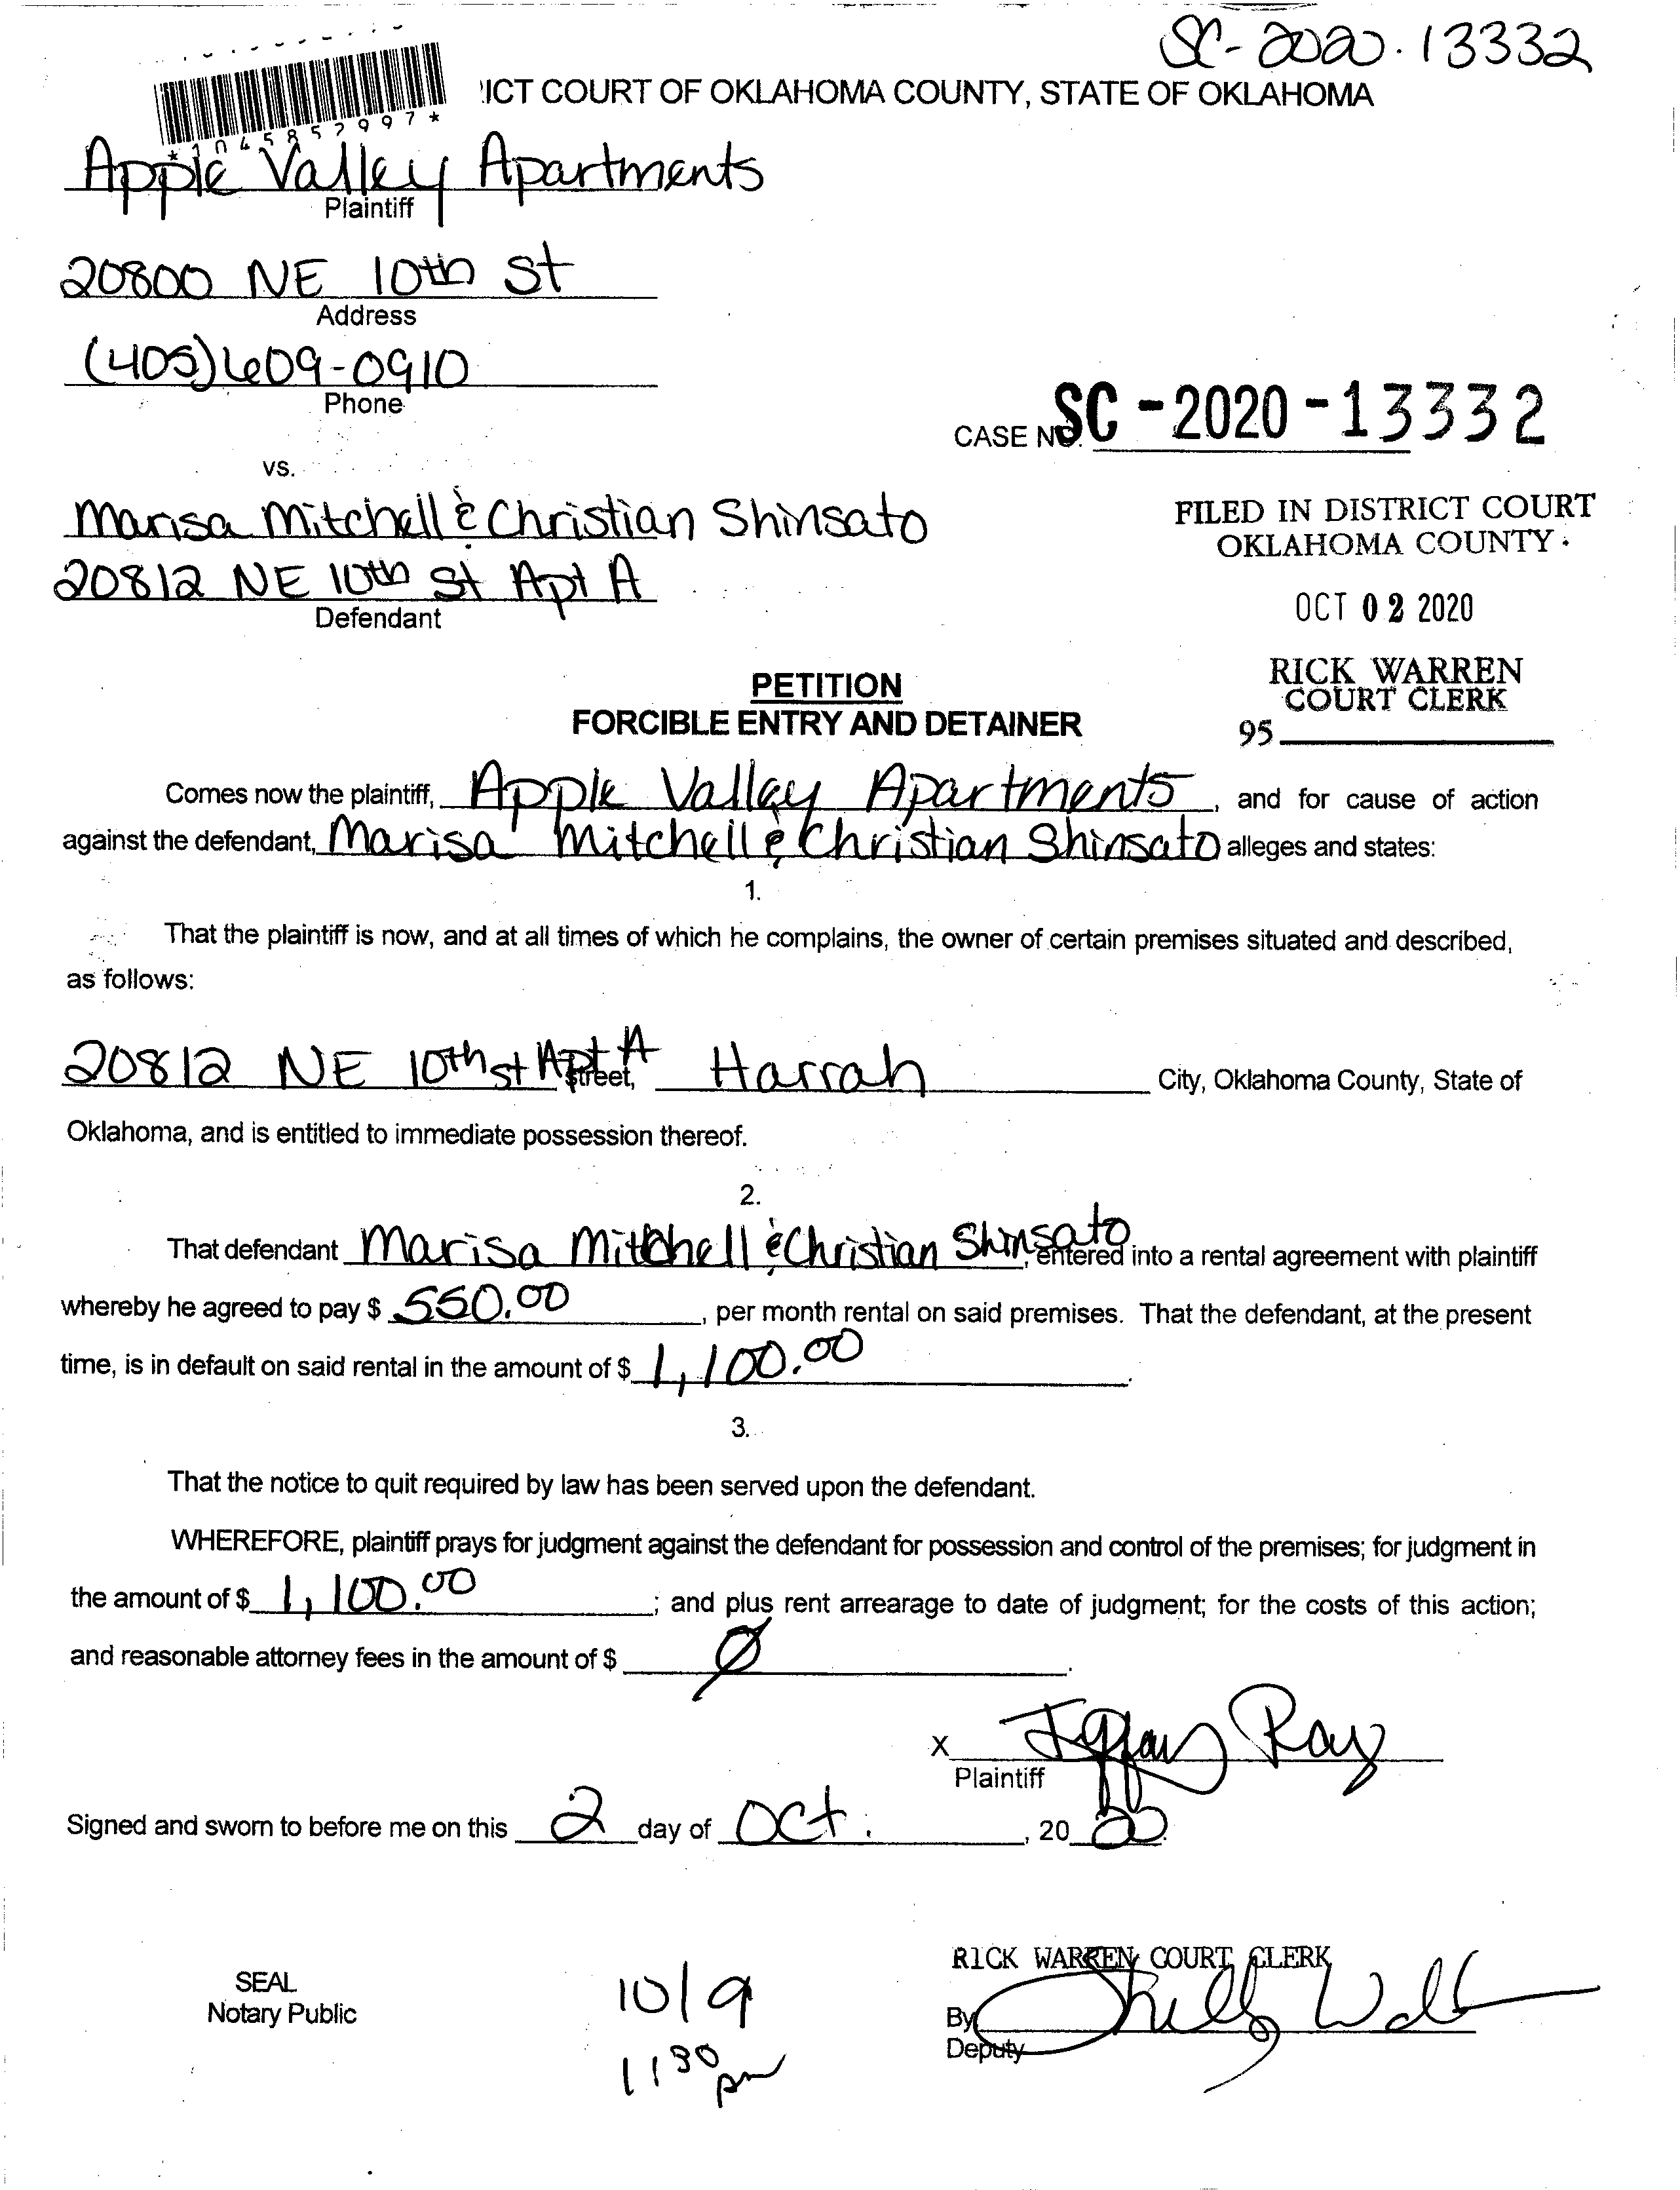 SC-2020-13332
'ICT COURT OF OKLAHOMA COUNTY, STATE OF OKLAHOMA
*1045852997*
Apple Valley Apartments
Plaintiff
20800 NE 10th St
Address
(405)609-0910
Phone
CASE NO. SC-2020-13332
vs.
Marisa Mitchell & Christian Shinsato
20812 NE 10th St Apt A
Defendant
FILED IN DISTRICT COURT
OKLAHOMA COUNTY
OCT 02 2020
RICK WARREN
COURT CLERK
95
PETITION
FORCIBLE ENTRY AND DETAINER
Comes now the plaintiff, Apple Valley Apartments, and for cause of action
against the defendant, Marisa Mitchell & Christian Shinsato alleges and states:
1.
That the plaintiff is now, and at all times of which he complains, the owner of certain premises situated and described,
as follows:
20812 NE 10th st Apt A Street, Harrah City, Oklahoma County, State of
Oklahoma, and is entitled to immediate possession thereof.
2.
That defendant Marisa Mitchell & Christian Shinsato, entered into a rental agreement with plaintiff
whereby he agreed to pay $ 550.00, per month rental on said premises. That the defendant, at the present
time, is in default on said rental in the amount of $ 1,100.00.
3.
That the notice to quit required by law has been served upon the defendant.
WHEREFORE, plaintiff prays for judgment against the defendant for possession and control of the premises; for judgment in
the amount of $ 1,100.00; and plus rent arrearage to date of judgment; for the costs of this action;
and reasonable attorney fees in the amount of $ Ø.
X Tiffany Ray
Plaintiff
Signed and sworn to before me on this 2 day of Oct., 2020.
RICK WARREN, COURT CLERK
SEAL
Notary Public
10/9
130 pm
By
Deputy